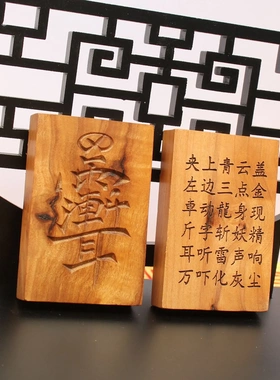 央上青云盖
左边三点金
卓动龍身现
斤字斩妖精
耳听雷声响
万吓化灰尘